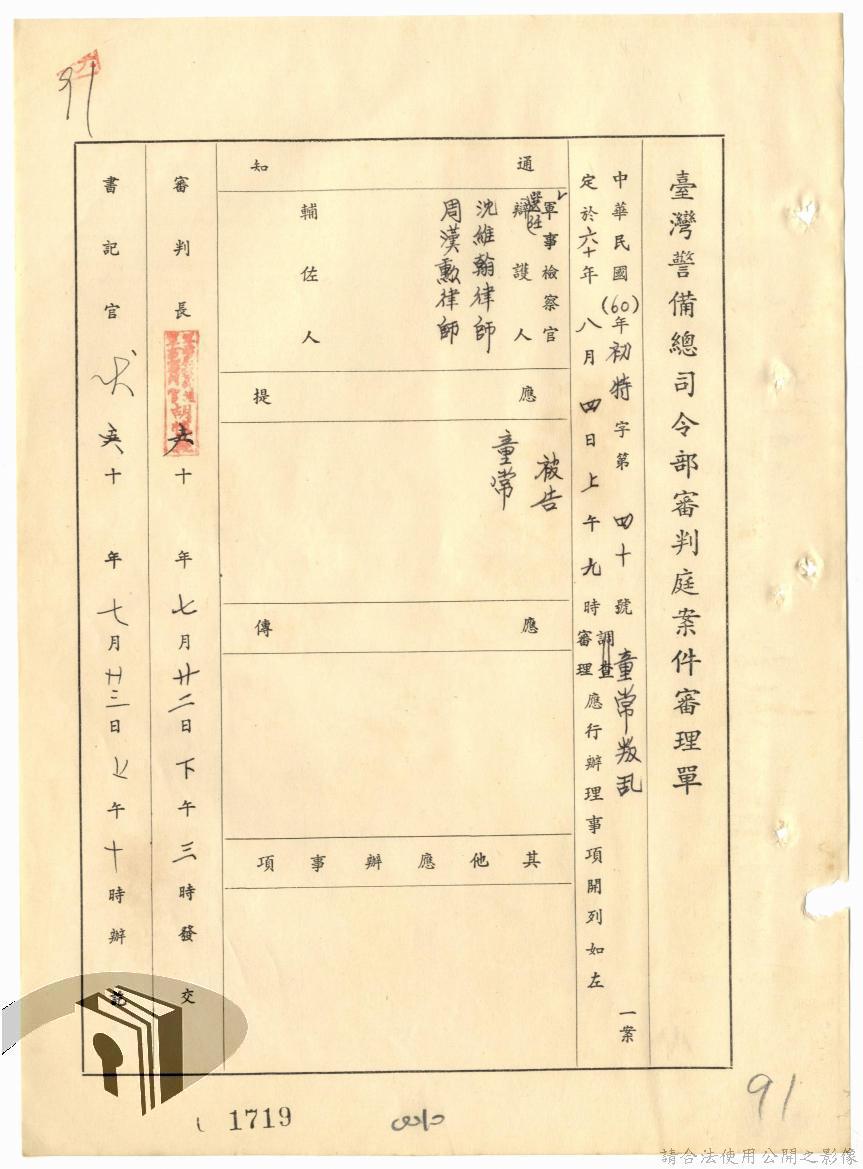 臺灣警備總司令部審判庭案件審理單
中華民國(60)年初特字第四十號童常叛乱一案
定於六十年八月四日上午九時調查審理應行辦理事項開列如左
通知
軍事檢察官
選任辯護人
沈維翰律師
周漢勲律師
輔佐人
應提
被告
童常
應傳
其他應辦事項
審判長
六十年七月廿二日下午三時發交
書記官
六十年七月廿三日上午十時辦訖
91
91
1719
請合法使用公開之影像